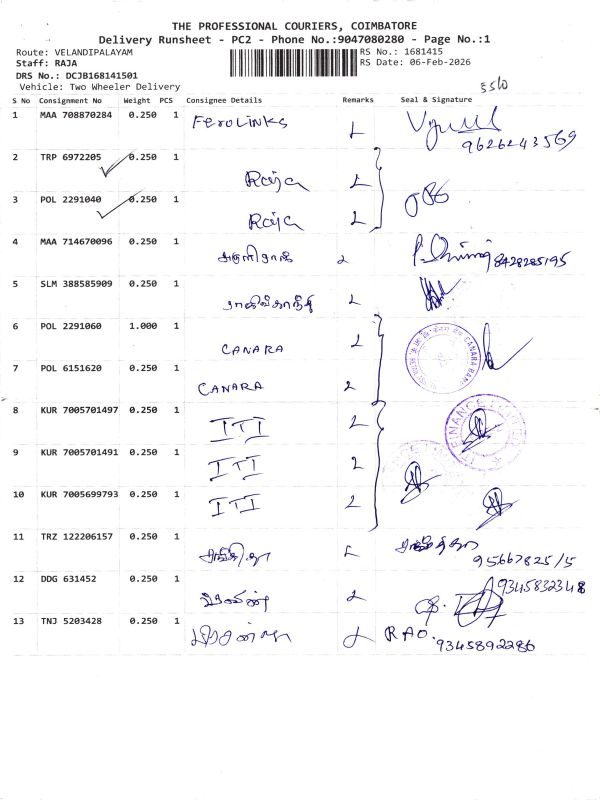 THE PROFESSIONAL COURIERS, COIMBATORE
Delivery Runsheet - PC2 - Phone No.:9047080280 - Page No.:1
Route: VELANDIPALAYAM RS No.: 1681415
Staff: RAJA RS Date: 06-Feb-2026
DRS No.: DCJB168141501
Vehicle: Two Wheeler Delivery
S No Consignment No Weight PCS Consignee Details Remarks Seal & Signature
1 MAA 708870284 0.250 1 FEROLINKS
9626243569
2 TRP 6972205 0.250 1
Raja
3 POL 2291040 0.250 1
Raja
4 MAA 714670096 0.250 1
8428285195
5 SLM 388585909 0.250 1
6 POL 2291060 1.000 1
CANARA
CANARA BANK
7 POL 6151620 0.250 1
CANARA
8 KUR 7005701497 0.250 1
ITI
FINANCE LIMITED
9 KUR 7005701491 0.250 1
ITI
10 KUR 7005699793 0.250 1
ITI
11 TRZ 122206157 0.250 1
சங்கீதா
95667825/5
12 DDG 631452 0.250 1
9345832348
13 TNJ 5203428 0.250 1
RAO.
9345892286